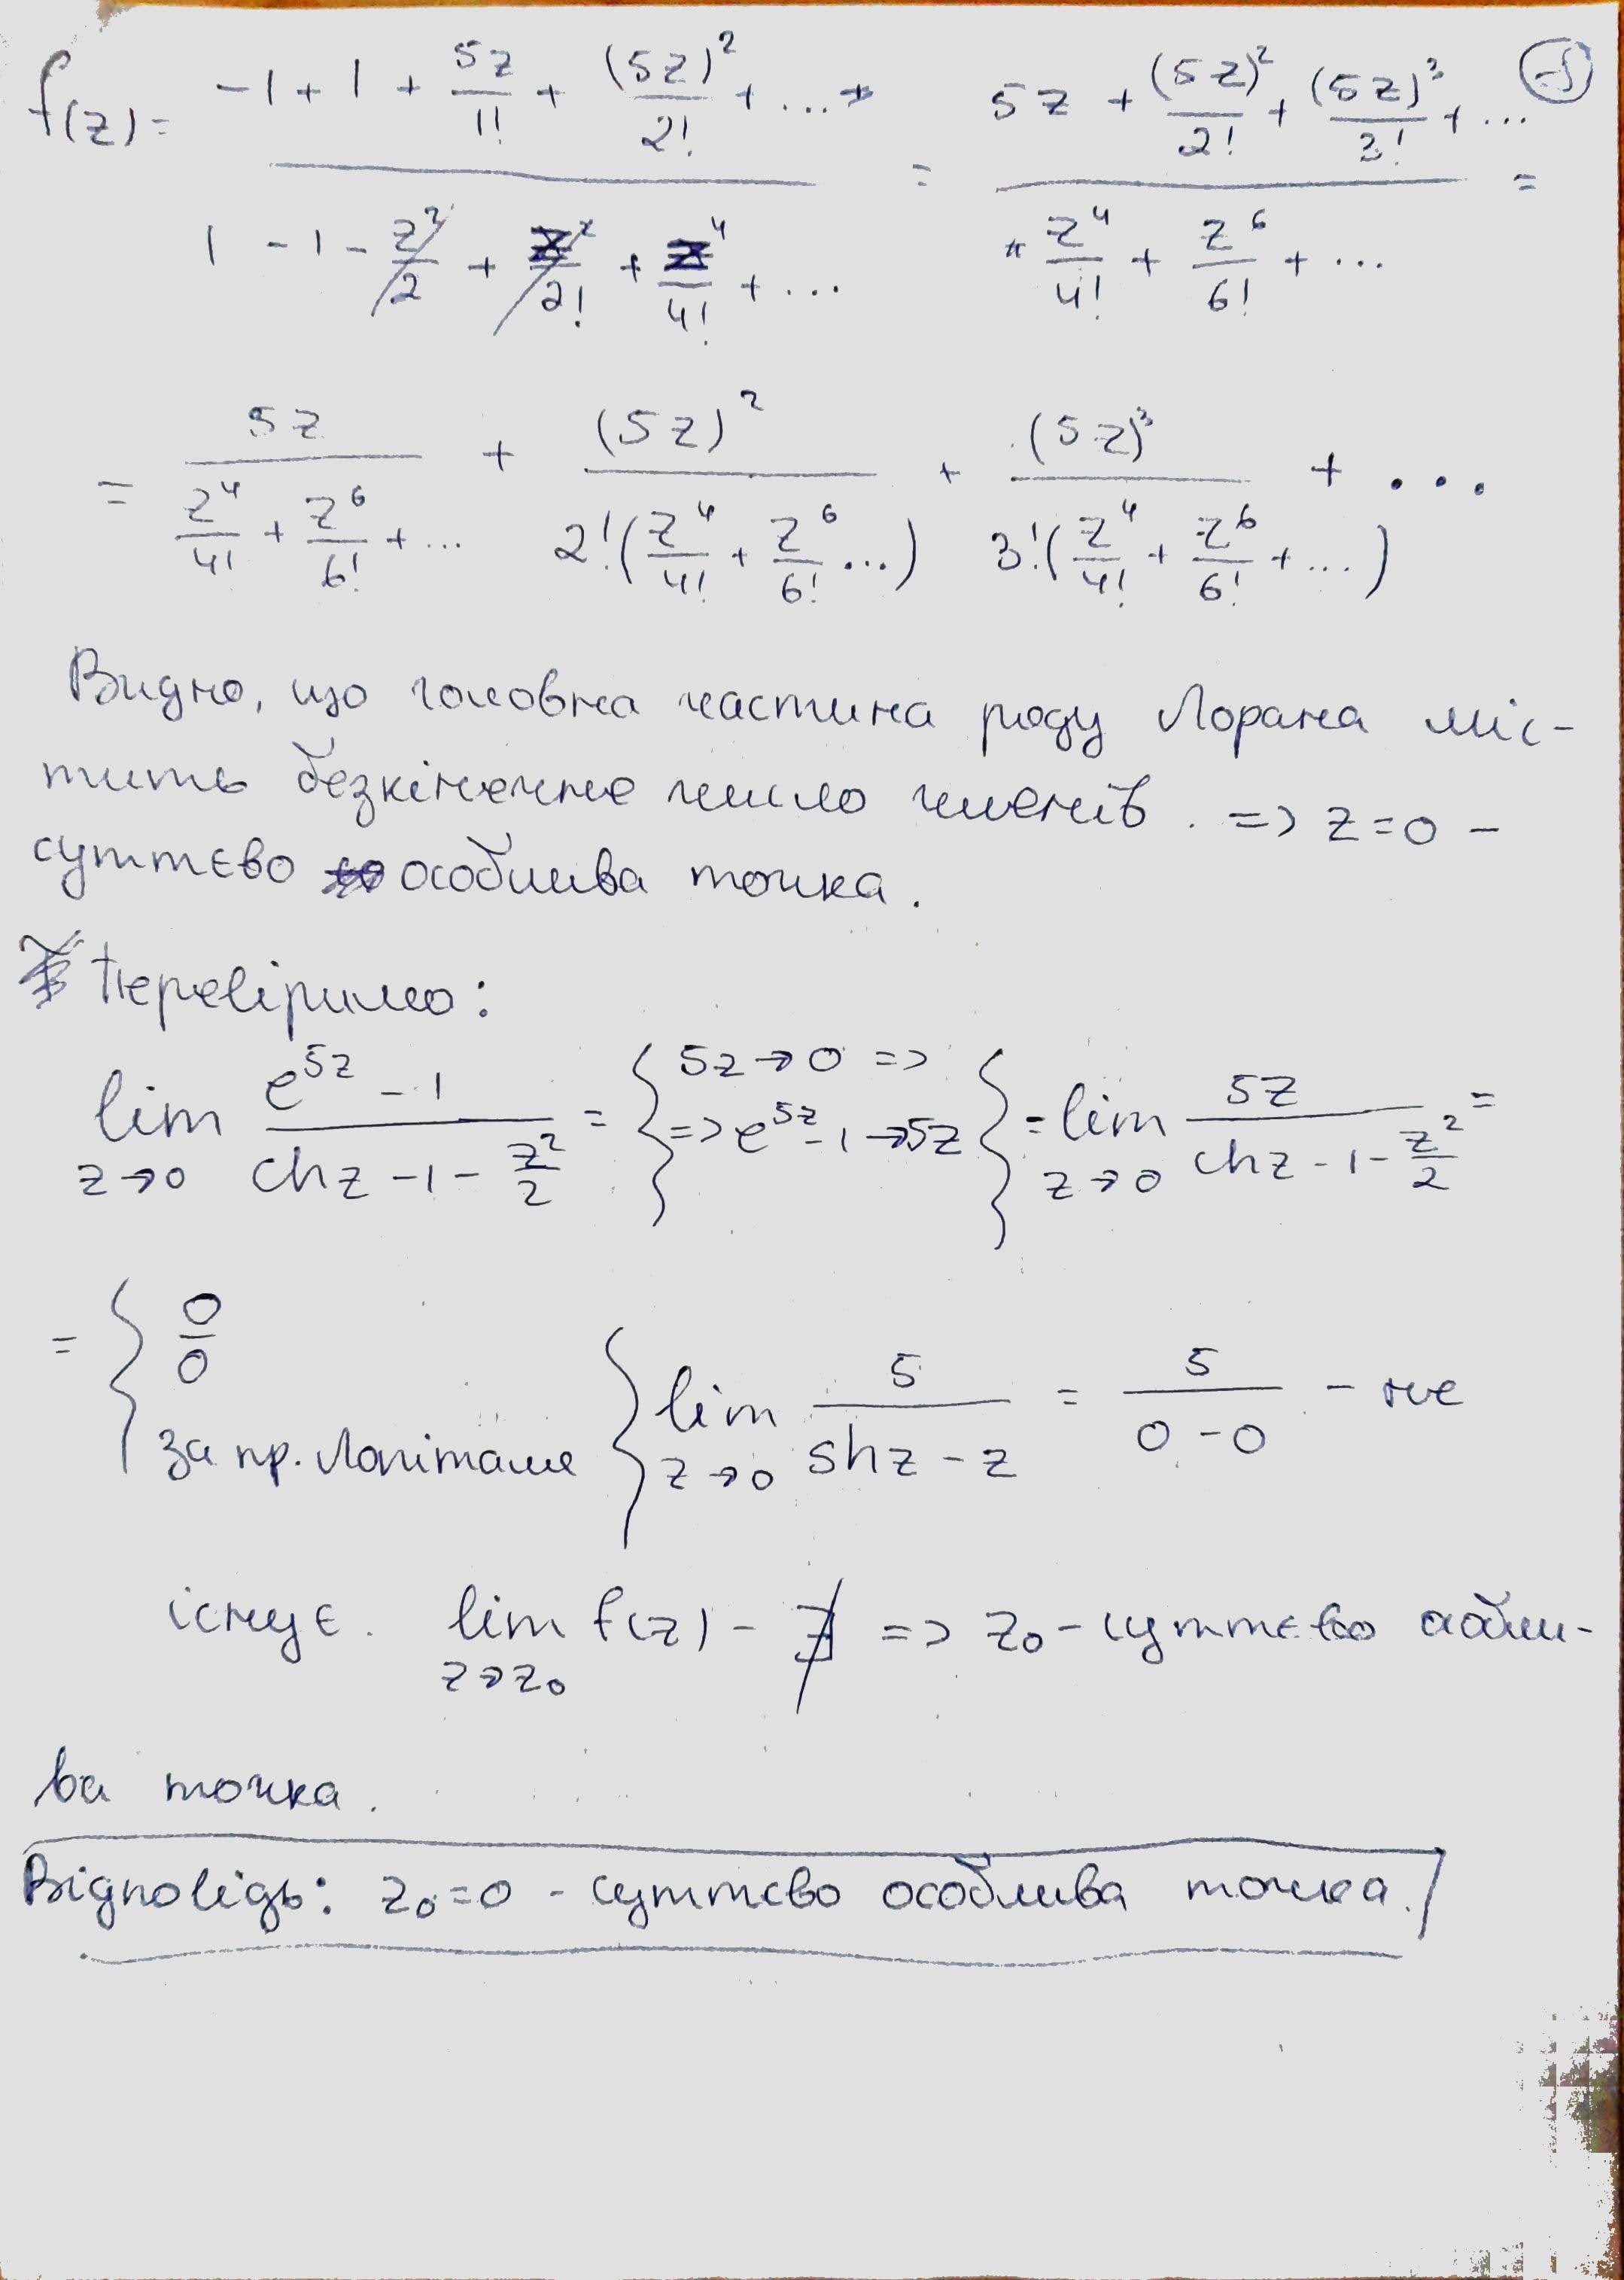 f(z) = (-1 + 1 + 5z/1! + (5z)²/2! + ...) / (1 - 1 - z²/2 + z²/2! + z⁴/4! + ...) = (5z + (5z)²/2! + (5z)³/3! + ...) / (z⁴/4! + z⁶/6! + ...) =
= 5z / (z⁴/4! + z⁶/6! + ...) + (5z)² / 2!(z⁴/4! + z⁶/6! ...) + (5z)³ / 3!(z⁴/4! + z⁶/6! + ...) + ...
Видно, що головна частина ряду Лорана міс-
тить безкінечне число членів. => z=0 -
суттєво особлива точка.
Перевіримо:
lim z→0 (e^5z - 1) / (chz - 1 - z²/2) = { 5z→0 => => e^5z - 1 → 5z } = lim z→0 5z / (chz - 1 - z²/2) =
= { 0/0 за пр. Лопіталя } lim z→0 5 / (shz - z) = 5 / (0 - 0) - не
існує. lim z→z₀ f(z) - ∄ => z₀ - суттєво особли-
ва точка.
Відповідь: z₀=0 - суттєво особлива точка.